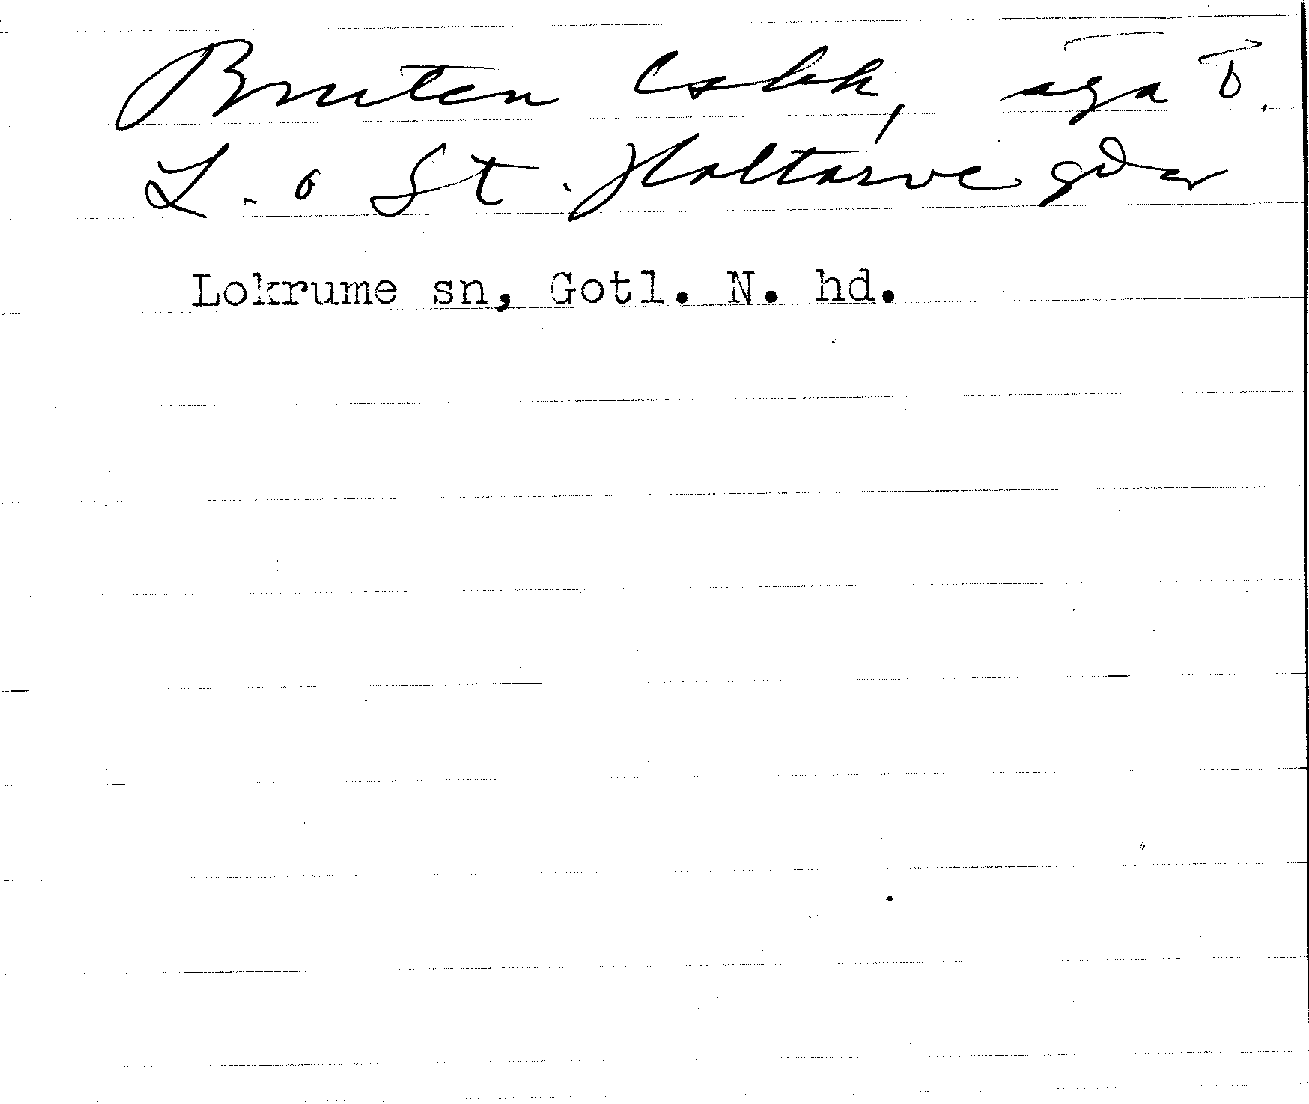 Bruten äga
L. o St. Haltarve gdar
Lokrume sn, Gotl. N. hd.